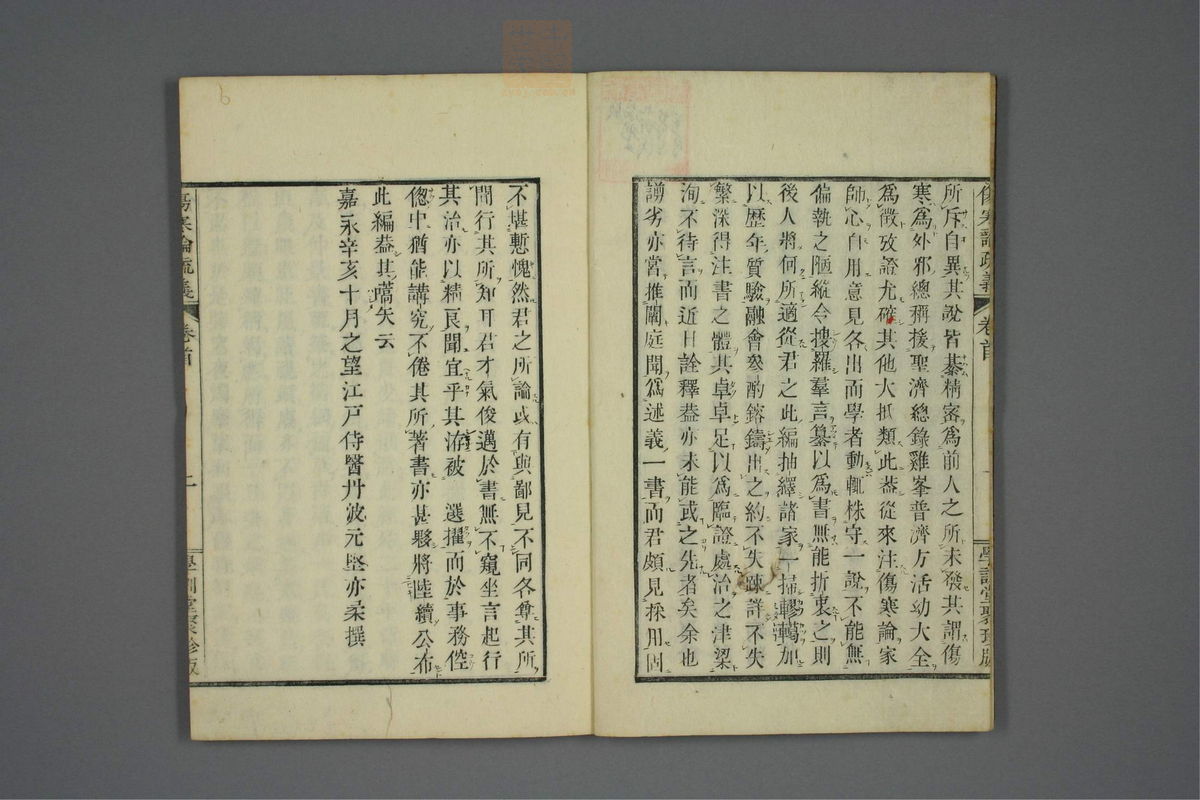 傷寒論疏義 卷首 學訓堂聚珍版
所斥自異其說皆綦精密爲前人之所未發其謂傷
寒爲外邪總稱援聖濟總錄雞峯普濟方活幼大全
爲徵攷證尤確其他大抵類此葢從來注傷寒論家
師心自用意見各出而學者動輒株守一說不能無
偏執之陋縱令搜羅羣言纂以爲書無能折衷之則
後人將何所適從君之此編抽繹諸家一掃轇轕加
以歷年質驗融會參酌鎔鑄出之約不失疎詳不失
繁深得注書之體其卓卓足以爲臨證處治之津梁
洵不待言而近日詮釋葢亦未能或之先者矣余也
譾劣亦嘗推闡庭聞爲述義一書而君頗見採用固
不堪慙愧然君之所論或有與鄙見不同各尊其所
聞行其所知耳君才氣俊邁於書無不窺坐言起行
其治亦以精良聞宜乎其洊被 選擢而於事務倥
偬中猶能講究不倦其所著書亦甚夥將陸續公布
此編葢其嚆矢云
嘉永辛亥十月之望江戶侍醫丹波元堅亦柔撰
傷寒論疏義 卷首 二 學訓堂聚珍版